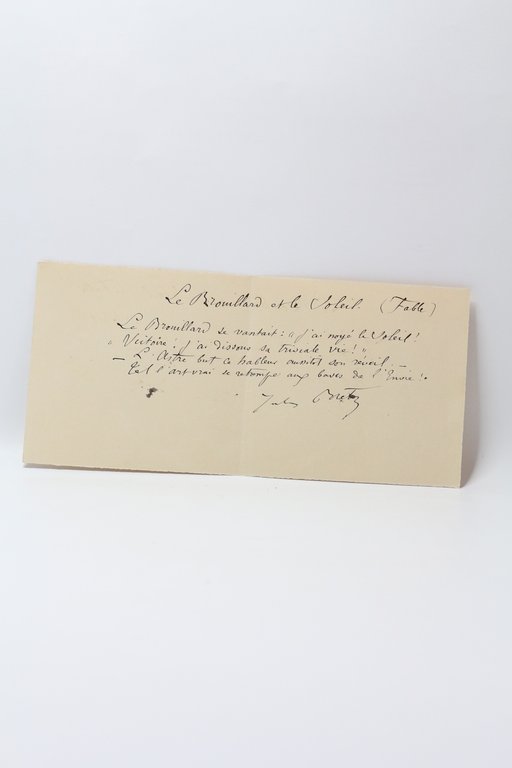 Le Brouillard et le Soleil. (Fable)
Le Brouillard se vantait : « j'ai noyé le Soleil !
« Victoire ! j'ai dissous sa triviale vie ! »
— L'Astre but ce hableur aussitôt son réveil. —
Tel l'art vrai se retrempe aux baves de l'Envie !
Jules Breton